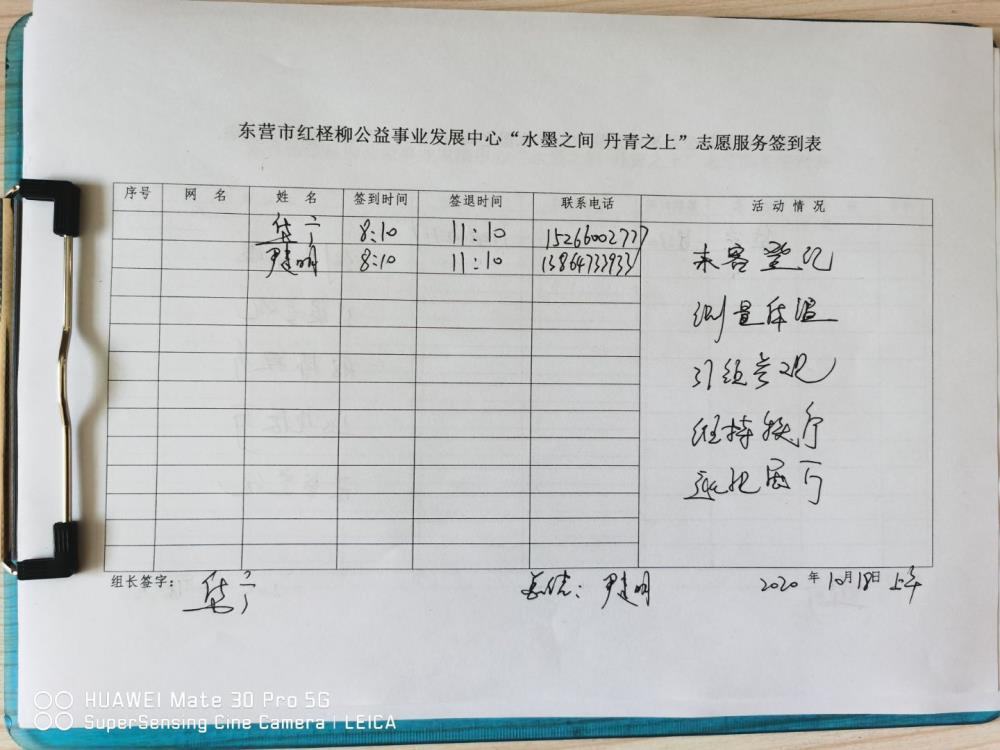 东营市红柽柳公益事业发展中心“水墨之间 丹青之上”志愿服务签到表
序号 网 名 姓 名 签到时间 签退时间 联系电话 活 动 情 况
8:10 11:10 15266002727
尹建明 8:10 11:10 13864733933
来客登记
测量体温
引领参观
维持秩序
巡视展厅
组长签字:
总结: 尹建明
2020 年 10月18日 上午
HUAWEI Mate 30 Pro 5G
SuperSensing Cine Camera | LEICA